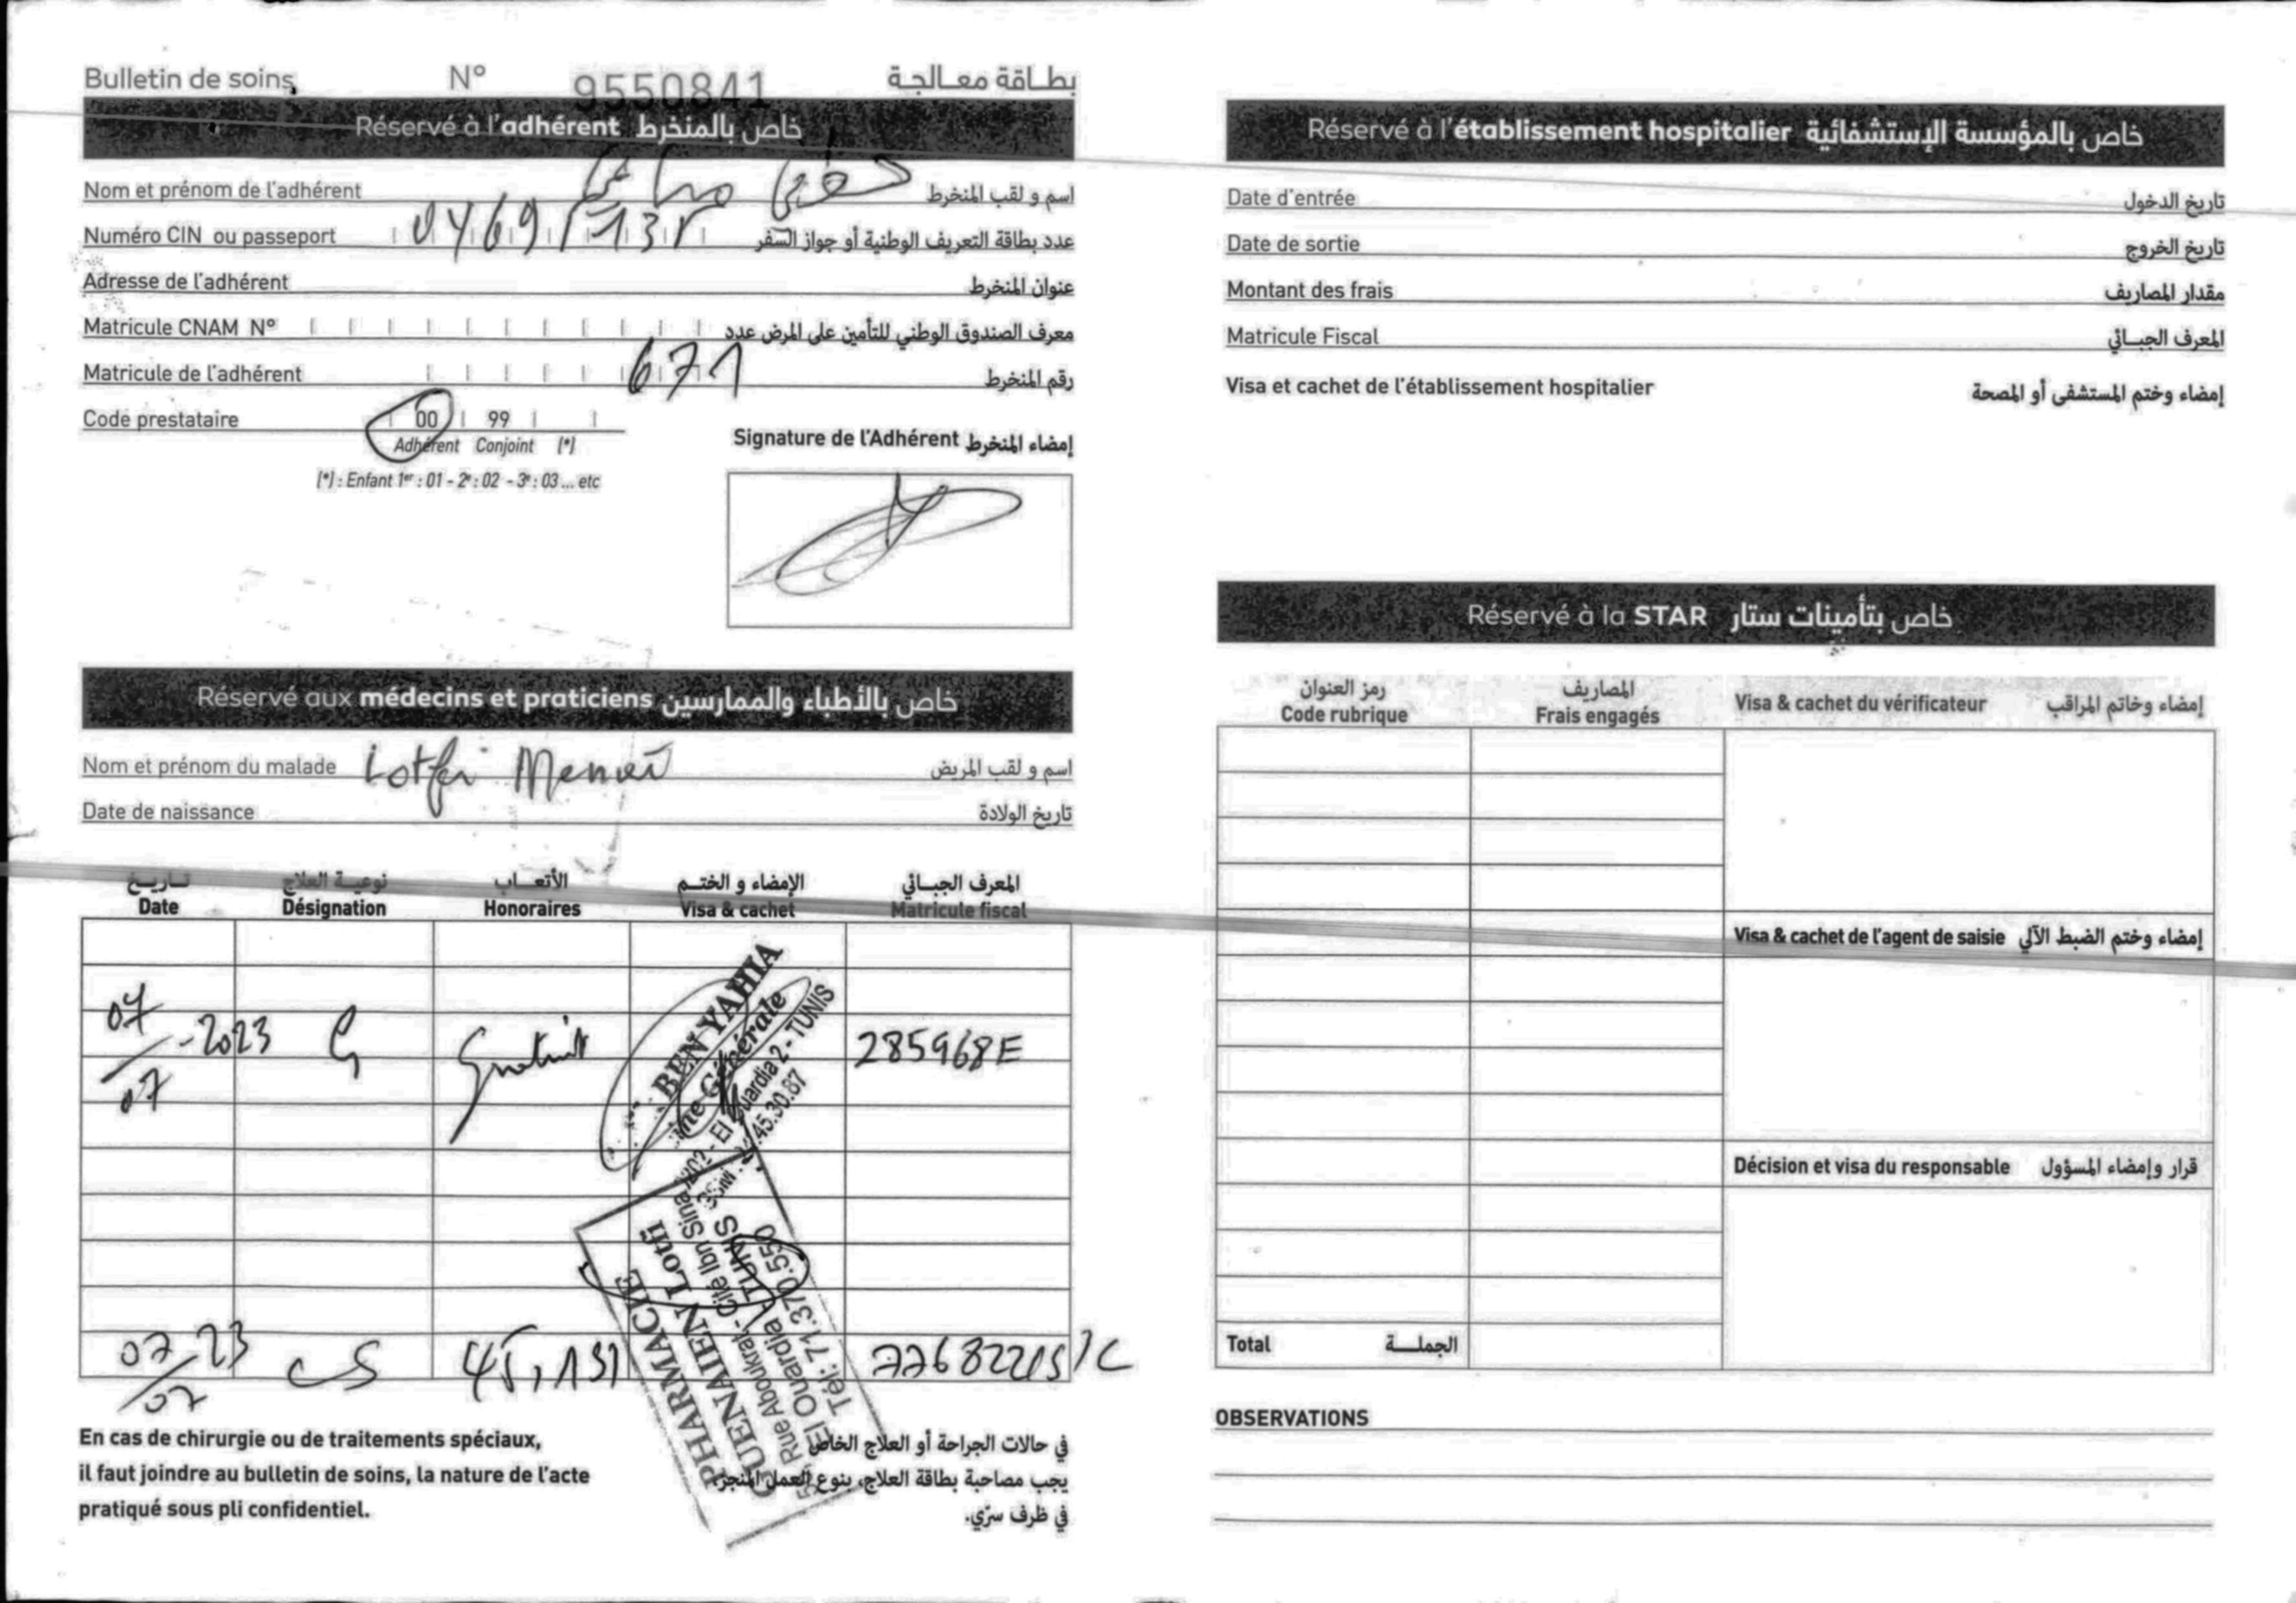 Bulletin de soins N° 9550841 بطاقة معالجة
Réservé à l'adhérent خاص بالمنخرط
Nom et prénom de l'adhérent اسم و لقب المنخرط
Numéro CIN ou passeport عدد بطاقة التعريف الوطنية أو جواز السفر
Adresse de l'adhérent عنوان المنخرط
Matricule CNAM N° معرف الصندوق الوطني للتأمين على المرض عدد
Matricule de l'adhérent 671 رقم المنخرط
Code prestataire 00 99
Adhérent Conjoint (*)
(*) : Enfant 1er : 01 - 2e : 02 - 3e : 03 ... etc
Signature de l'Adhérent إمضاء المنخرط
Réservé aux médecins et praticiens خاص بالأطباء والممارسين
Nom et prénom du malade Lotfi اسم و لقب المريض
Date de naissance تاريخ الولادة
تاريخ نوعية العلاج الأتعاب الإمضاء و الختم المعرف الجبائي
Date Désignation Honoraires Visa & cachet Matricule fiscal
07/07-2023 G Gratuit 285968E
BEN YAHIA
Générale
El Ouardia 2 - TUNIS
45.30.87
PHARMACIE
GUENAIEN Lotfi
Rue Aboukrat - Cité Ibn Sina
El Ouardia TUNIS
Tél: 71.370.550
07/07 23 CS 45,131
En cas de chirurgie ou de traitements spéciaux,
il faut joindre au bulletin de soins, la nature de l'acte
pratiqué sous pli confidentiel.
في حالات الجراحة أو العلاج الخاص
يجب مصاحبة بطاقة العلاج، بنوع العمل المنجز
في ظرف سرّي.
Réservé à l'établissement hospitalier خاص بالمؤسسة الإستشفائية
Date d'entrée تاريخ الدخول
Date de sortie تاريخ الخروج
Montant des frais مقدار المصاريف
Matricule Fiscal المعرف الجبائي
Visa et cachet de l'établissement hospitalier إمضاء وختم المستشفى أو المصحة
Réservé à la STAR خاص بتأمينات ستار
رمز العنوان المصاريف
Code rubrique Frais engagés Visa & cachet du vérificateur إمضاء وخاتم المراقب
Visa & cachet de l'agent de saisie إمضاء وختم الضبط الآلي
Décision et visa du responsable قرار وإمضاء المسؤول
Total الجملة
OBSERVATIONS